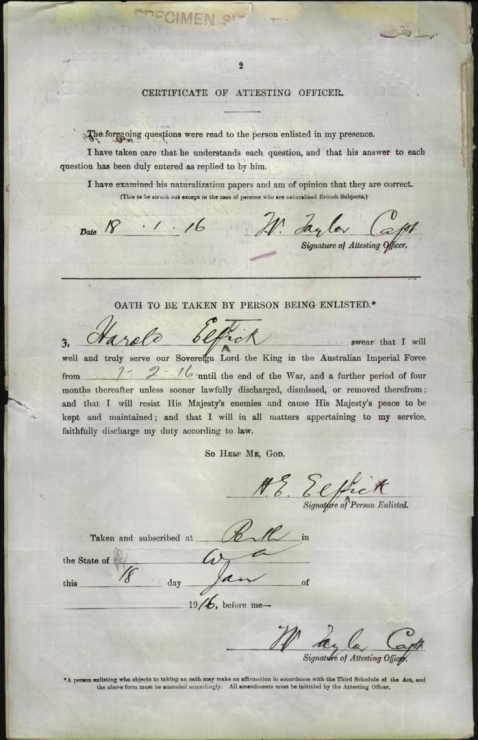 SPECIMEN
2
CERTIFICATE OF ATTESTING OFFICER.
The foregoing questions were read to the person enlisted in my presence.
I have taken care that he understands each question, and that his answer to each
question has been duly entered as replied to by him.
I have examined his naturalization papers and am of opinion that they are correct.
(This to be struck out except in the case of persons who are naturalized British Subjects.)
Date 18 . 1 . 16 W. Taylor Capt
Signature of Attesting Officer.
OATH TO BE TAKEN BY PERSON BEING ENLISTED.*
I, Harold Elfick swear that I will
well and truly serve our Sovereign Lord the King in the Australian Imperial Force
from 7-2-16 until the end of the War, and a further period of four
months thereafter unless sooner lawfully discharged, dismissed, or removed therefrom;
and that I will resist His Majesty's enemies and cause His Majesty's peace to be
kept and maintained; and that I will in all matters appertaining to my service,
faithfully discharge my duty according to law.
SO HELP ME, GOD.
H.E. Elfick
Signature of Person Enlisted.
Taken and subscribed at Perth in
the State of W A
this 18 day Jan of
1916, before me—
W Taylor Capt
Signature of Attesting Officer.
*A person enlisting who objects to taking an oath may make an affirmation in accordance with the Third Schedule of the Act, and
the above form must be amended accordingly. All amendments must be initialed by the Attesting Officer.